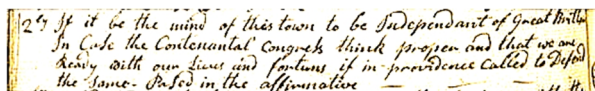 2ly If it be the mind of this town to be Independant of Great Brittan
In Case the Contenantal Congress think proper and that we are
Ready with our Lives and fortuns if in providence called to Defend
the same - Pased in the affirmative